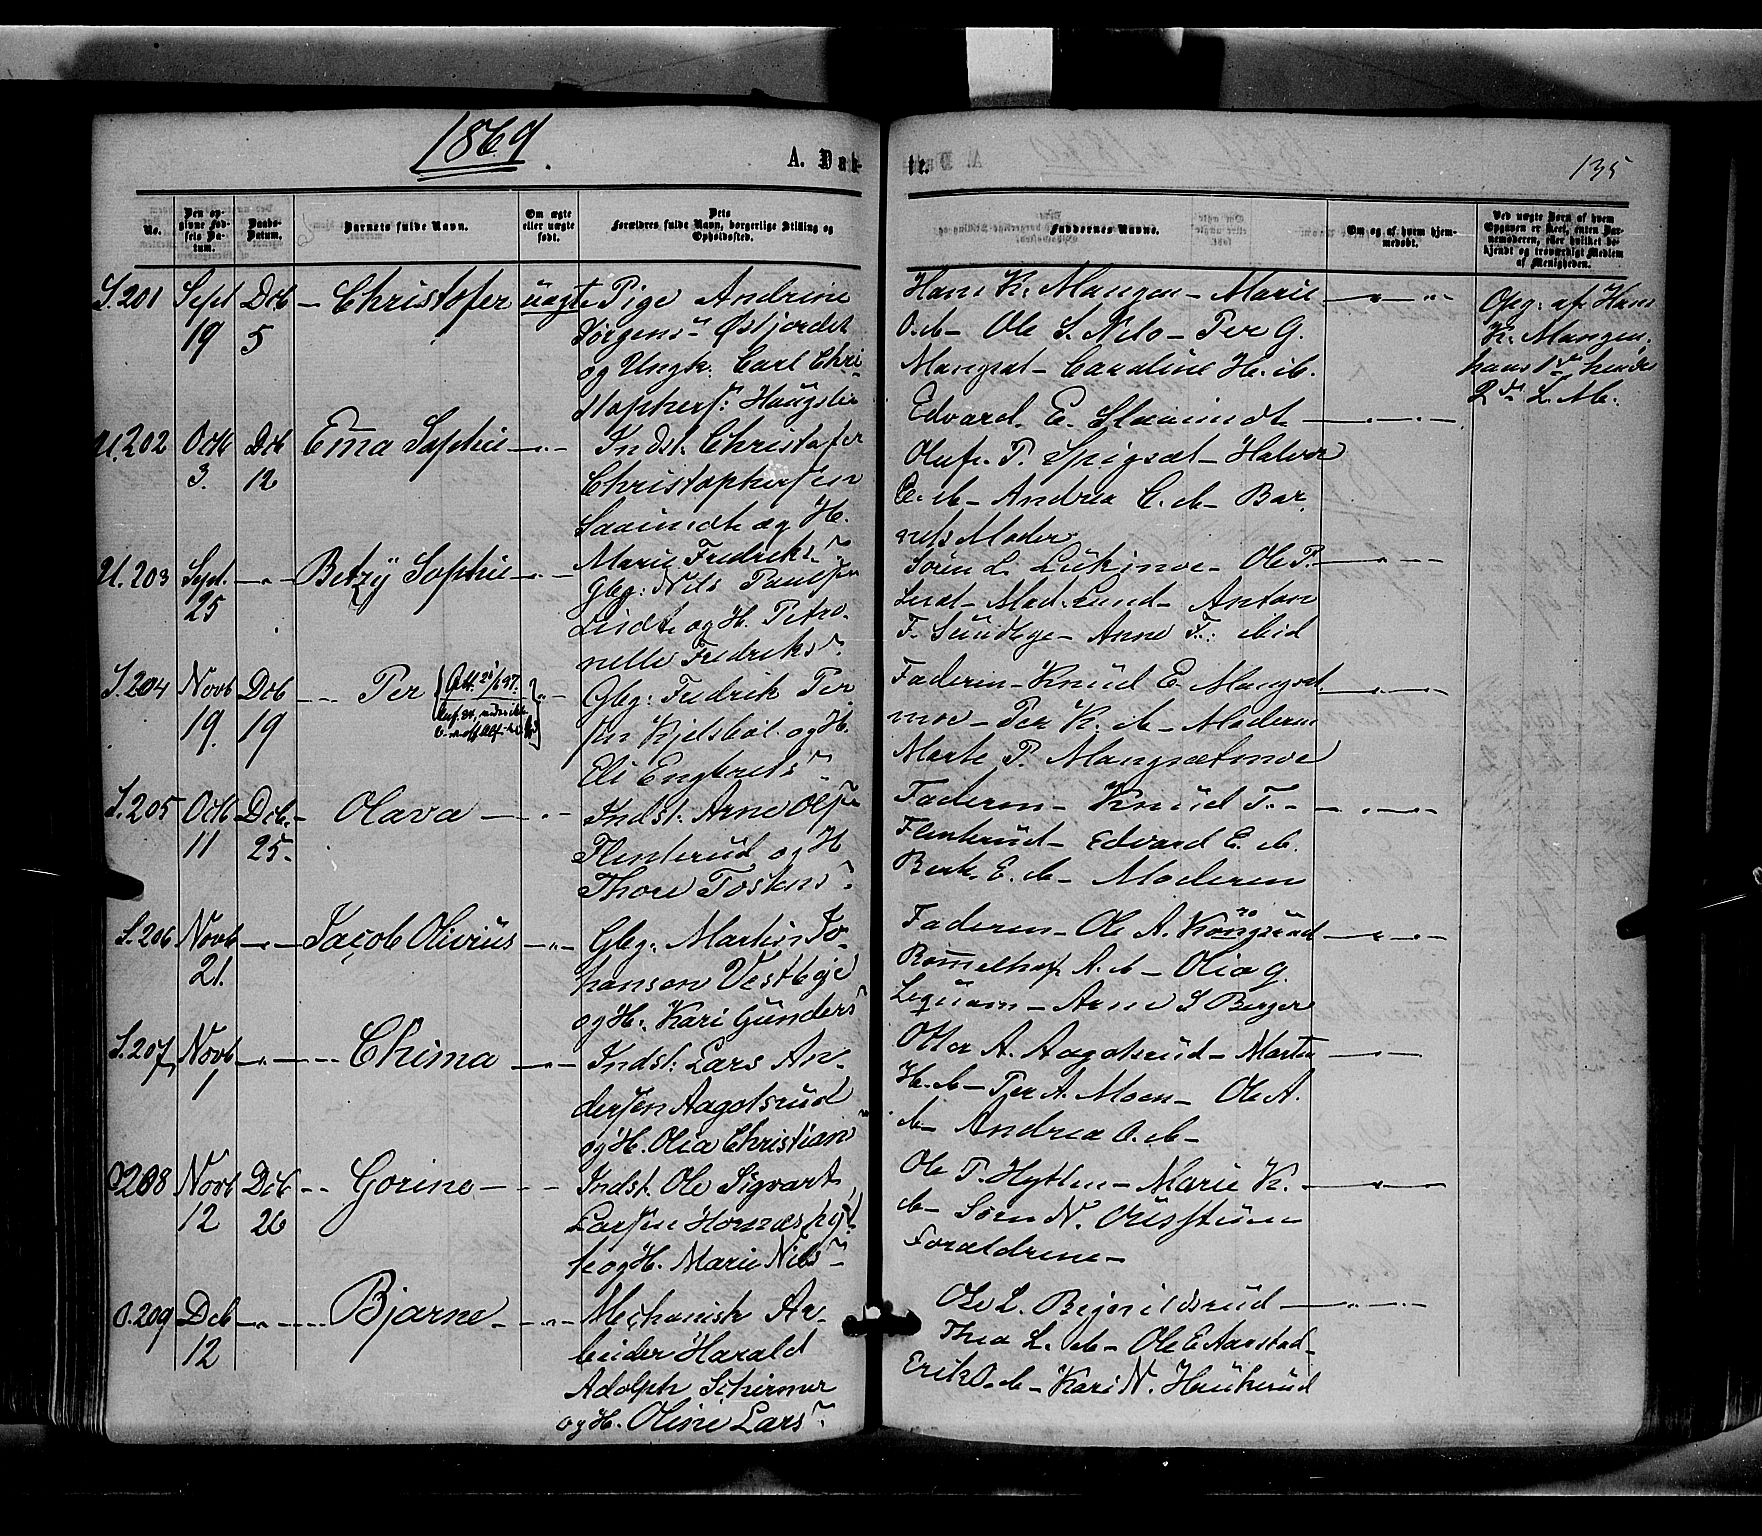 1869.
A. Dåb-
te.
135
No.
Den op-
givne Fød-
sels Da-
tum.
Daabs-
Datum.
Barnets fulde Navn.
Om ægte
eller uægte
født.
Dets
Forældres fulde Navn, borgerlige Stilling og
Opholdssted.
Faddernes Navne.
Om og af hvem hjem-
medøbt.
Ved uægte Børn af hvem
Opgaven er skeet, enten Bar-
nemoderen, eller hvilket be-
kjendt og troværdigt Medlem
af Menigheden.
S.201 Sept 19 Dcb 5 Christofer uægte
Pige Andrine
Jörgens Östjordet
og Ungk. Carl Chri-
stophers: Haugslie
Hans K. Mangen - Marie
O. db - Ole S. Nilo - Per G.
Mangset - Caroline H. ib.
Opg: af Hans
K. Mangen,
hans 1ste hendes
2den L. M.
U.202 Octb 3. Dcb 12 Ema Sophie
Indst. Christofer
Christophersen
Saaundt og H.
Marie Fredriks
Edvard E. Slaaundt
Oluf T. Spigset - Halvor
E. db - Andrea C. db - Bar-
nets Moder
U.203 Sept. 25 Betzy Sophie
Gbg: Nils Paulsen
Lindte og H. Petro-
nelle Fredriks
Sören L. Lükimoe - Ole P.
Lund - Mad. Lund - Anton
F. Sundbye - Anne F. ibid
S.204 Novb 19. Dcb 19 Per
Gbg: Fredrik Per-
sen Kjelsböl og H.
Eli Engbrets
Faderen - Knud E. Mangset-
moe - Per K. db - Moderen
Marte P. Mangsetmoe
S.205 Octb 11 Dcb. 25. Olava
Indst. Arne Olsen
Flenterud og H
Thore Tostens
Faderen - Knud T. -
Flenterud - Edvard E. db.
Berte E. db - Moderen
S.206 Novb 21. Jacob Olivius
Gbg: Martin Jo-
hansen Vestbye
og H. Kari Gunders
Faderen - Ole A. Kongsrud
A. db - Olia G.
Arne S Berger
S.207 Novb 1 Chima
Indst: Lars An-
dersen Aagotsrud
og H. Olia Christian
Otter A. Aagotsrud - Marte
H. db - Per A. Moen - Ole A.
db - Andrea O. db -
O.208 Novb 12 Dcb 26 Gorine
Indst. Ole Sigvart
Larsen Hornæshyt-
te og H. Marie Nils
Ole T. Hytten - Marie K.
db - Sören N.
Forældrene -
O.209 Dcb 12 Bjarne
Mechanisk Ar-
beider Harald
Adolph Schirmer
og H. Oline Lars
Ole L. Bejerildsrud
Thea L. db - Ole E Aarstad -
Erik O. db - Kari N. Haukerud